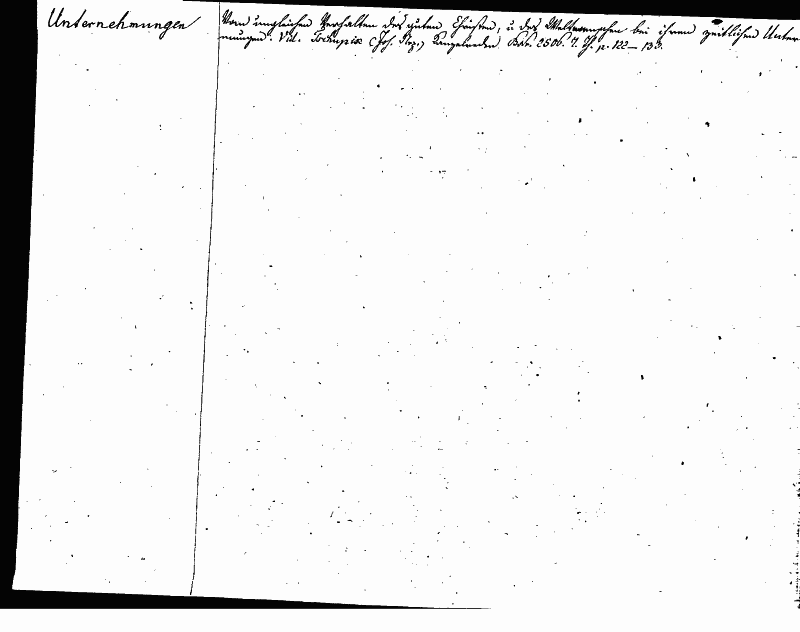 Unternehmungen
Vom ungleichen Verhalten des guten Christen, u. des Weltmenschen bei ihren zeitlichen Unter-
nehmungen. Vid. (Joh. Nep.) Kanzelreden. 2506. 7. p. 122–133.